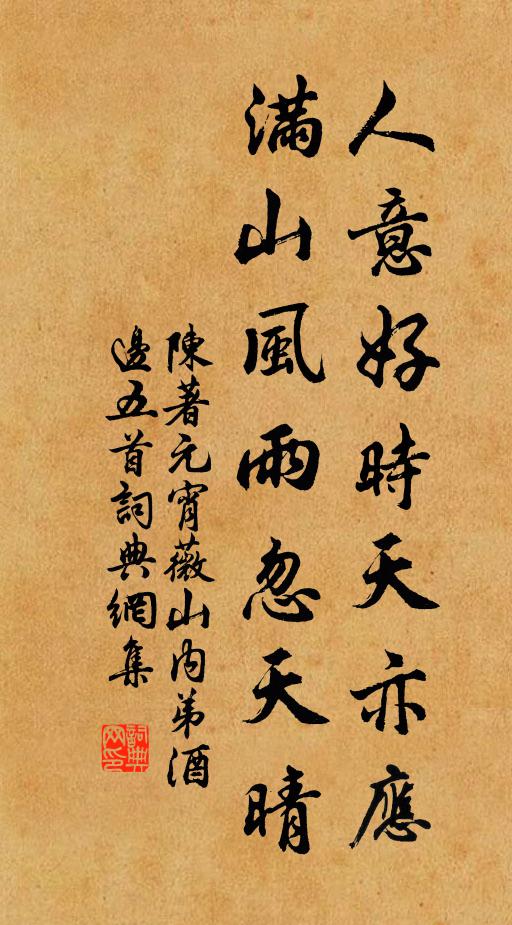 人意好時天亦應
滿山風雨忽天晴
陳著元宵薇山內弟酒
邊五首詞典網集
詞典網印